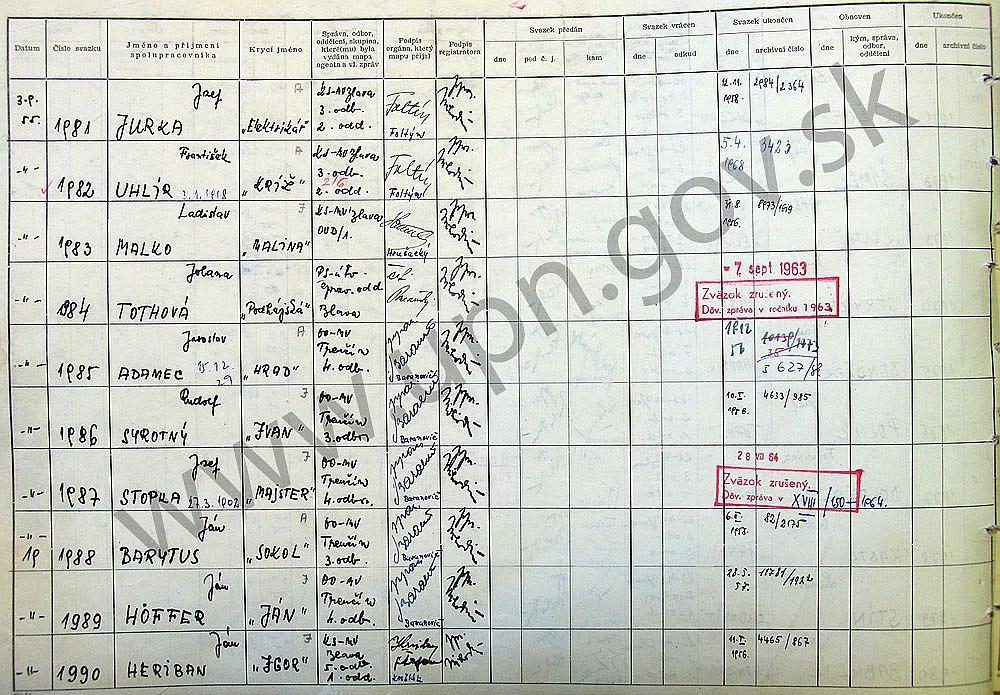 Datum
Číslo svazku
Jméno a příjmení
spolupracovníka
Krycí jméno
Správa, odbor,
oddělení, skupina,
které(mu) byla
vydána mapa
agenta a vl. zpráv
Podpis
orgána, který
mapu přijal
Podpis
registratora
Svazek předán
dne
pod č. j.
kam
Svazek vrácen
dne
odkud
Svazek ukončen
dne
archivní číslo
Obnoven
dne
kým, správa,
odbor,
oddělení
Ukončen
dne
archivní číslo
3.9.
55.
1981
Jozef
JURKA
A
"Elektrikář"
KS-MV Zlava
3. odb.
2. odd.
Foltýn
12.11.
1958.
2984/2364
-"-
1982
František
UHLÍR 3.1.1918
A
"KRÍŽ"
KS-MV Zlava
3. odb.
2/6.
2. odd.
Foltýn
5.4.
1968
3423
-"-
1983
Ladislav
MALKO
J
"MALINA"
KS-MV Zlava
OVD/1.
Hrušecký
31.8.
1956.
-"-
984
Jolana
TOTHOVÁ
J
"Podhájská"
Zlava
- 7. sept 1963
Zväzok zrušený.
Dův. zpráva v ročníku 1963.
-"-
1985
Jaroslav
ADAMEC 15.12.
29
A
"HRAD"
OO-MV
Trenčín
4. odb.
Baranovič
1912
56
5 627/82
-"-
1986
Rudolf
SYROTNÝ
J
"IVAN"
OO-MV
Trenčín
3. odbor
Baranovič
10.I.
1958.
4633/985
-"-
1987
Jozef
STOPKA 27.3.1902
J
"MAJSTER"
OO-MV
Trenčín
4. odbor.
Baranovič
28 VII 64
Zväzok zrušený.
Dův. zpráva v XVIII/150- 1964.
-"-
19
1988
Ján
BARYTUS
A
"SOKOL"
OO-MV
Trenčín
3. odb.
Baranovič
6.I.
1958.
82/2175
-"-
1989
Ján
HÖFFER
J
"JÁN"
OO-MV
Trenčín
4. odb.
Baranovič
28.5.
57.
11781/1922
-"-
1990
Ján
HERIBAN
J
"IGOR"
KS-MV
Zlava
5. odb.
1. odd.
11.I.
1956.
4465/867
www.upn.gov.sk